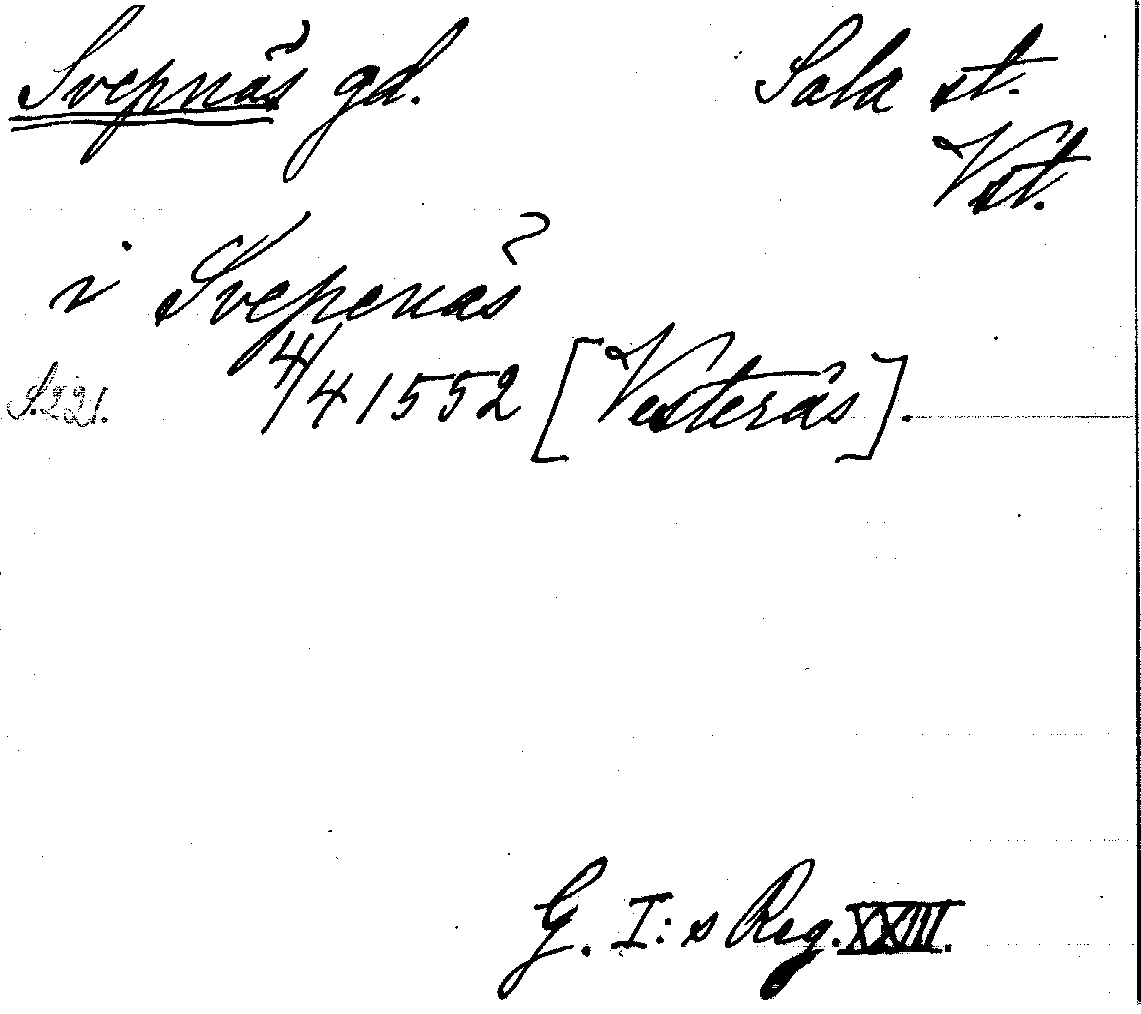 Svepnäs gd. Sala st.
Vst.
i Svepenäs
S.221. 4/4 1552 [Vesterås].
G. I:s Reg. XXIII.